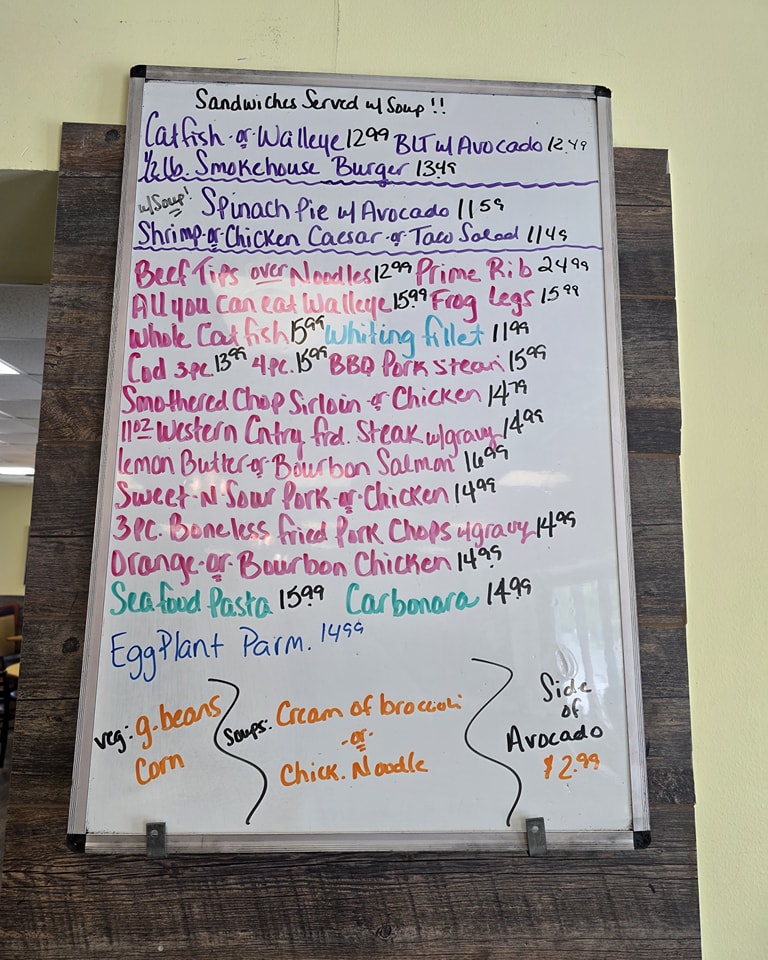 Sandwiches Served w/ Soup !!
Catfish -or- Walleye 12.99 BLT w/ Avocado 12.49
1/2 lb. Smokehouse Burger 13.49
w/ Soup! Spinach Pie w/ Avocado 11.59
Shrimp -or- Chicken Caesar -or- Taco Salad 11.49
Beef Tips over Noodles 12.99 Prime Rib 24.99
All you can eat Walleye 15.99 Frog Legs 15.99
Whole Catfish 15.99 Whiting fillet 11.99
Cod 3pc 13.99 4pc. 15.99 BBQ Pork Steak 15.99
Smothered Chop Sirloin -or- Chicken 14.79
11oz Western Cntry frd. Steak w/gravy 14.99
Lemon Butter -or- Bourbon Salmon 16.99
Sweet-N-Sour Pork -or- Chicken 14.99
3pc. Boneless fried Pork Chops w/gravy 14.99
Orange -or- Bourbon Chicken 14.99
Seafood Pasta 15.99 Carbonara 14.99
EggPlant Parm. 14.99
veg: g-beans
Corn
Soups: Cream of broccoli
-or-
Chick. Noodle
Side
of
Avocado
$2.99